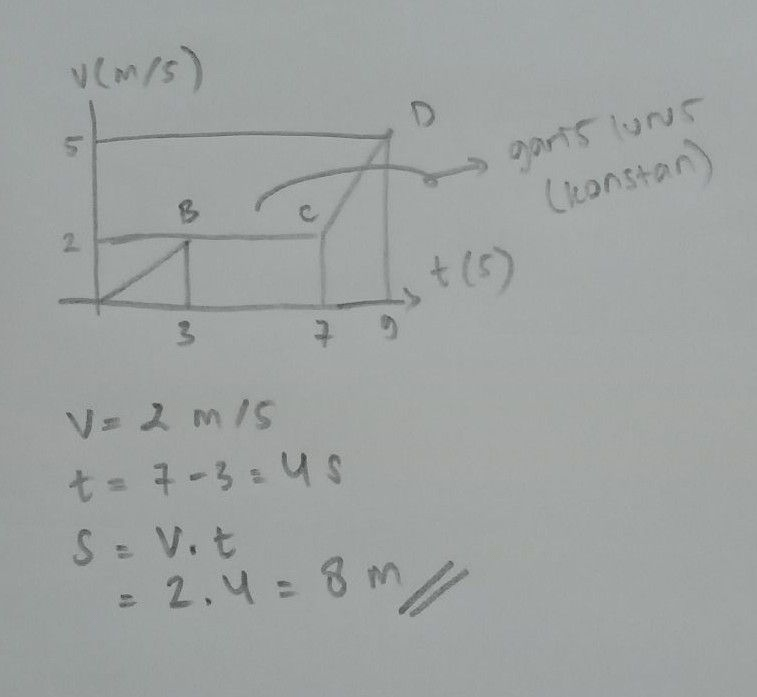 V(m/s)
5
D
garis lurus
(konstan)
B
C
2
t(s)
3 7 9
V = 2 m/s
t = 7-3 = 4 s
S = V.t
= 2.4 = 8 m //